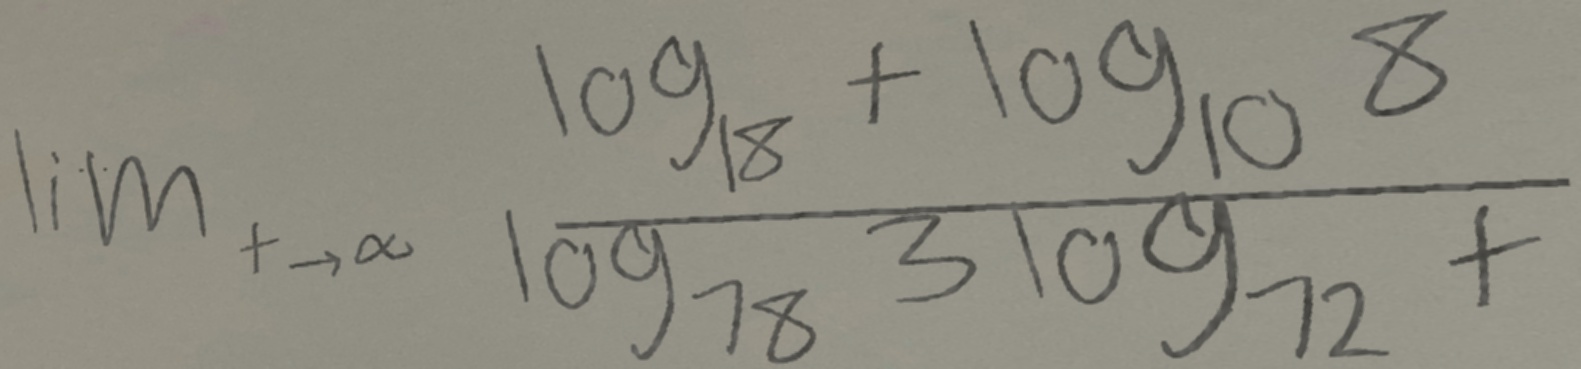 lim_{t→∞} \frac{log_{18} t log_{10} 8}{log_{78} 3 log_{72} t}